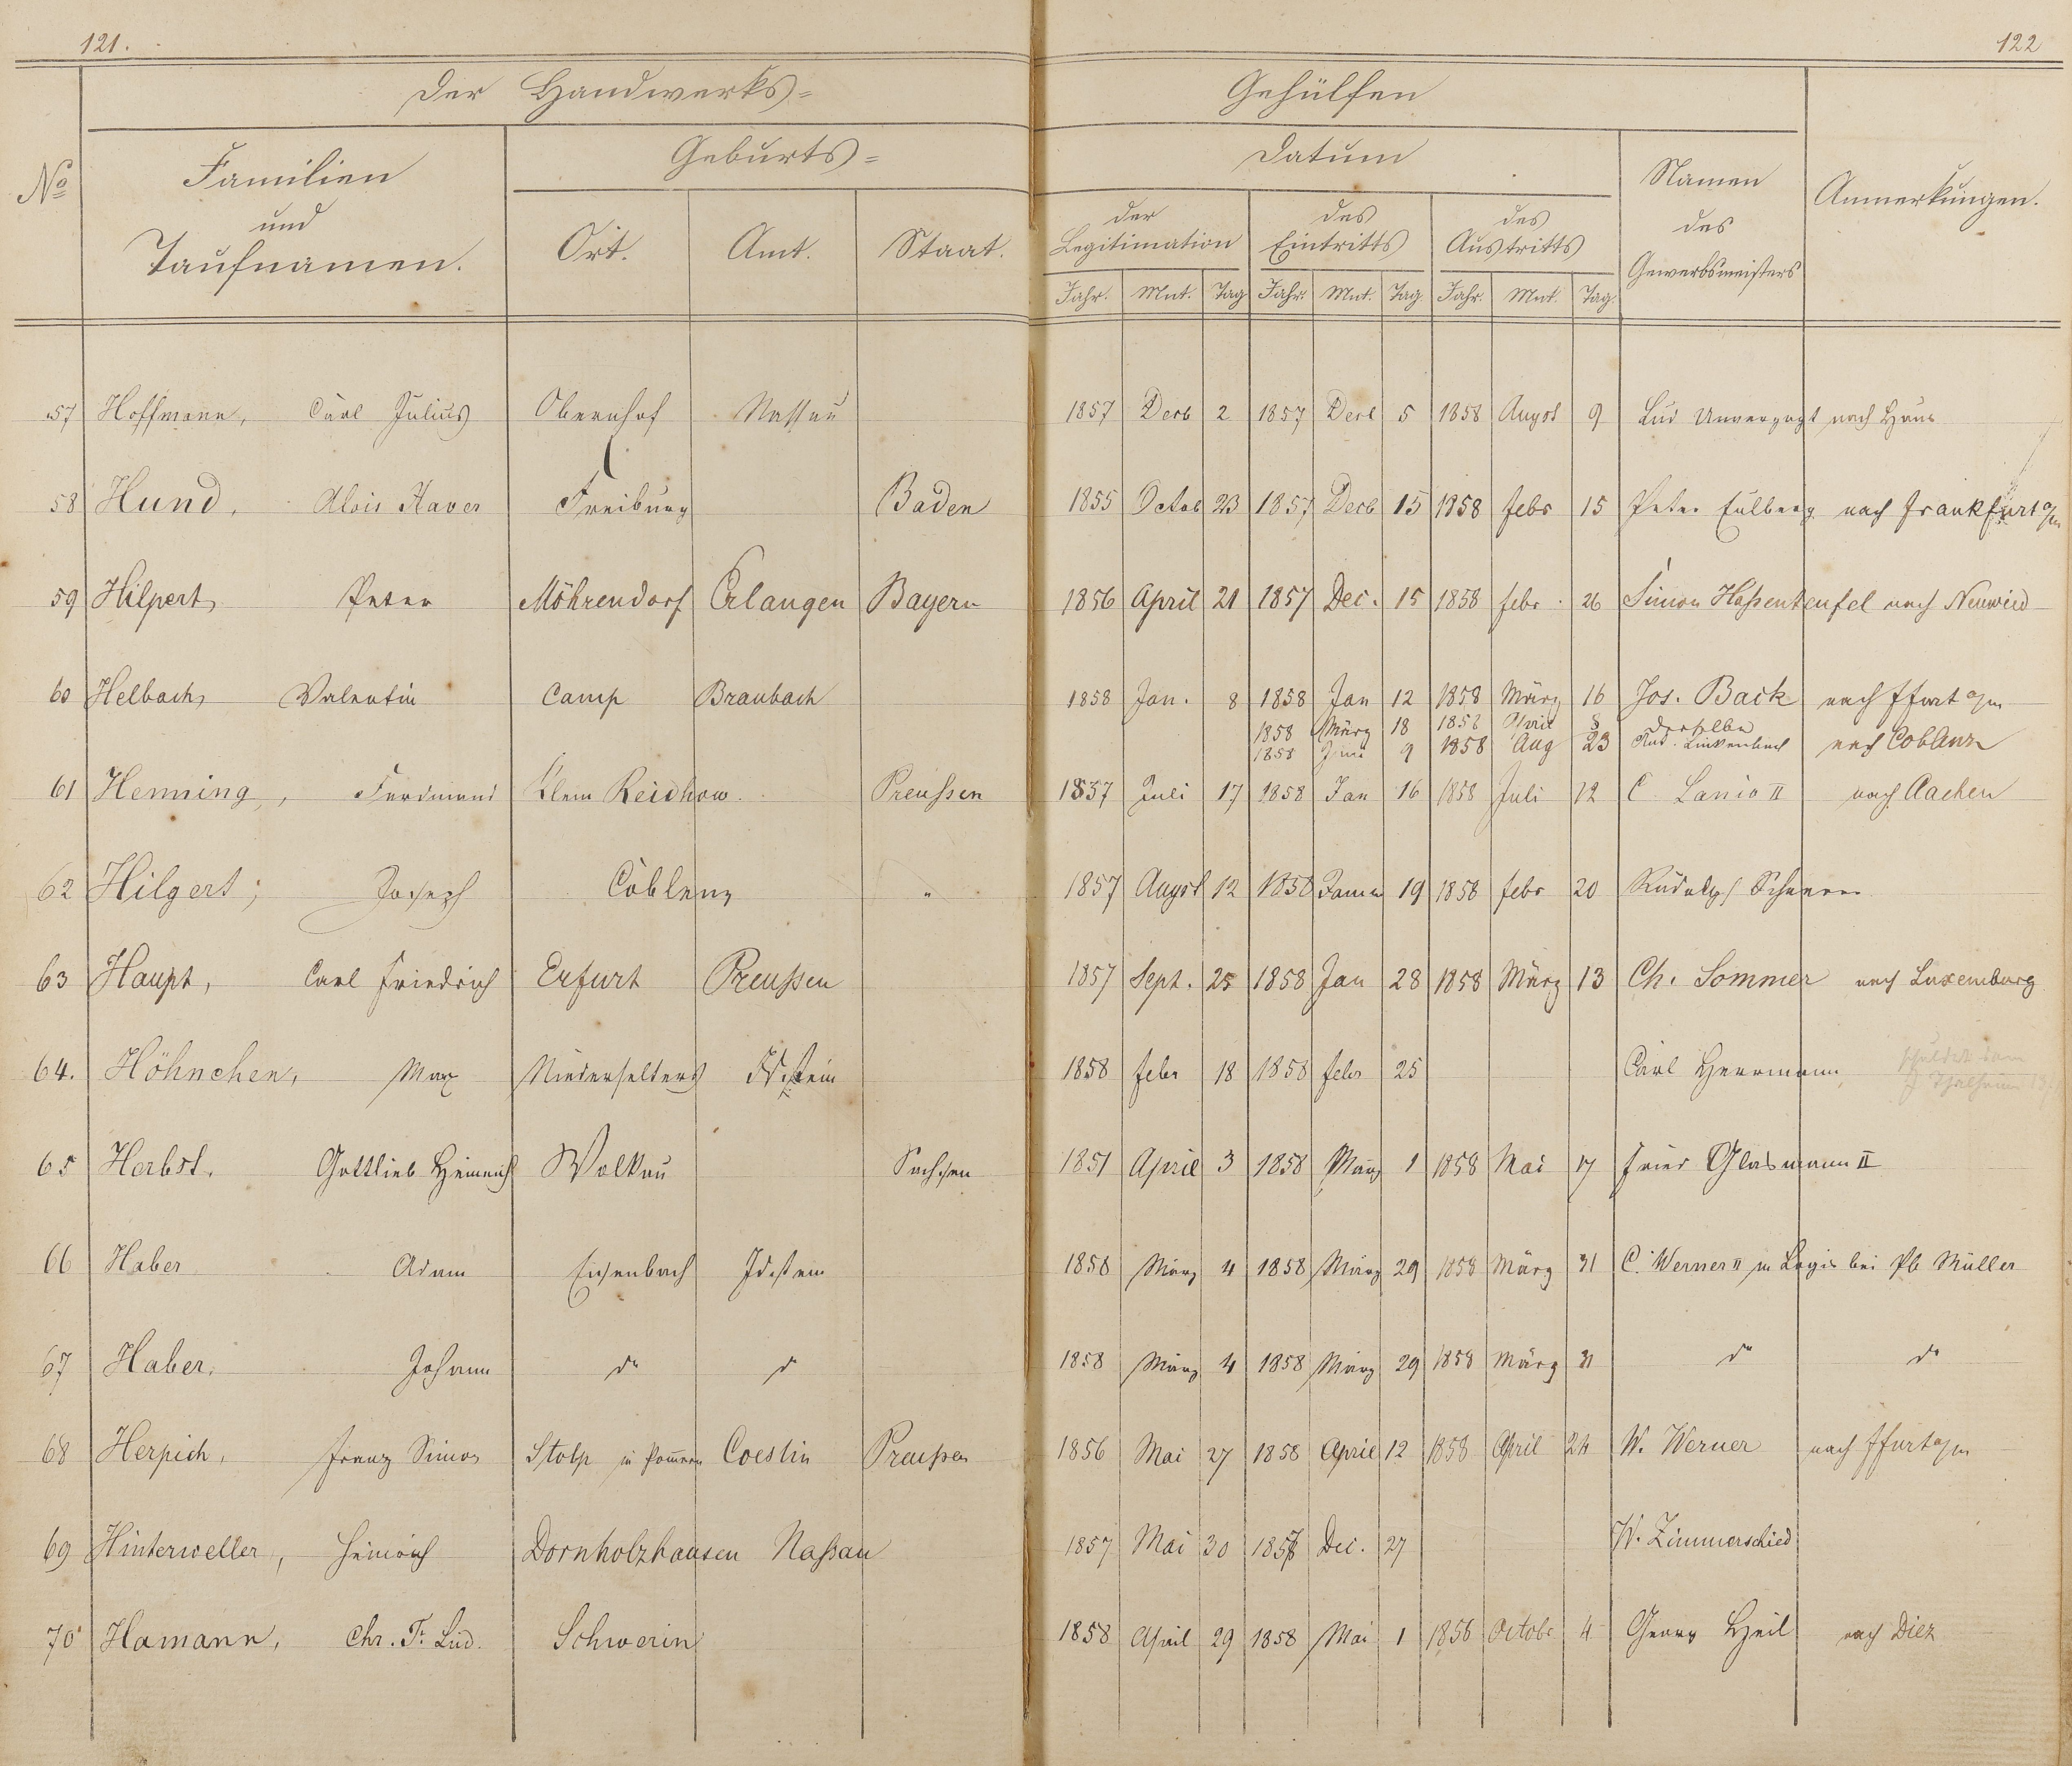 121.
122
Der Handwerks=
Gehülfen
No
Familien
und
Taufnamen.
Geburts=
Ort.
Amt.
Staat.
Datum
der
Legitimation
des
Eintritts
des
Austritts
Jahr. Mnt. Tag Jahr. Mnt. Tag Jahr. Mnt. Tag.
Namen
des
Gewerbsmeisters
Anmerkungen.
57 Hoffmann, Carl Julius Obernhof Nassau 1857 Decb 2 1857 Decb 5 1858 August 9 Lud Unverzagt nach Haus
58 Hund, Alois Xaver Freiburg Baden 1855 Octob 23 1857 Decb 15 1858 Febr 15 Peter Eulberg nach Frankfurt a/m
59 Hilpert, Peter Möhrendorf Erlangen Bayern 1856 April 21 1857 Dec. 15 1858 Febr. 26 Simon Haßenteufel nach Neuwied
60 Helbach, Valentin Camp Braubach 1858 Jan. 8 1858 Jan 12 1858 März 16 Jos. Back nach Ffurt a/m
1858 März 18 1858 April 8 derselbe
1858 Juni 9 1858 Aug 23 Linkenbach nach Coblenz
61 Henning, Ferdinand Klein Reichow Preußen 1857 Juli 17 1858 Jan 16 1858 Juli 12 C Lanio II nach Aachen
62 Hilgert, Joseph Coblenz " 1857 August 12 1858 Januar 19 1858 Febr 20 Rudolph
63 Haupt, Carl Friedrich Erfurt Preußen 1857 Sept. 25 1858 Jan 28 1858 März 13 Ch. Sommer nach Luxemburg
64. Höhnchen, Max Niederselters Idstein 1858 Febr 18 1858 Febr 25 Carl Herrmann
65 Herbst, Gottlieb Heinrich Wolkau Sachsen 1851 April 3 1858 März 1 1858 Mai 17 Fried Glasmann II
66 Haber Adam Eisenbach Idstein 1858 März 4 1858 März 29 1858 März 31 C. Werner II in Logis bei Ph Müller
67 Haber, Johann do do 1858 März 4 1858 März 29 1858 März 31 do do
68 Herpich, Franz Simon Stolp in Pomern Coeslin Preußen 1856 Mai 27 1858 April 12 1858 April 24 W. Werner nach Ffurt a/m
69 Hinterweller, Heinrich Dornholzhausen Naßau 1857 Mai 30 1857 Dec. 27 W. Zimmerschied
70 Hamann, Chr. Fr. Lud. Schwerin 1858 April 29 1858 Mai 1 1858 Octobr 4 Georg Heil nach Diez